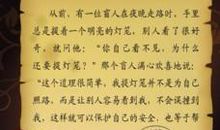 从前、有一位盲人在夜晚走路时、手里
总是提着一个明亮的灯笼、别人看了很好
奇、就问他：“你自己看不见、为什么
还要提灯笼？”那个盲人满心欢喜地说：
“这个道理很简单、我提灯笼并不是为自己
照路、而是让别人容易看到我、不会误撞到
我、这样就可以保护自己的安全、也等于帮